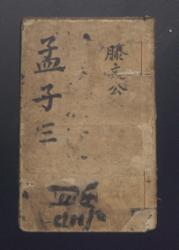 孟子三
滕文公